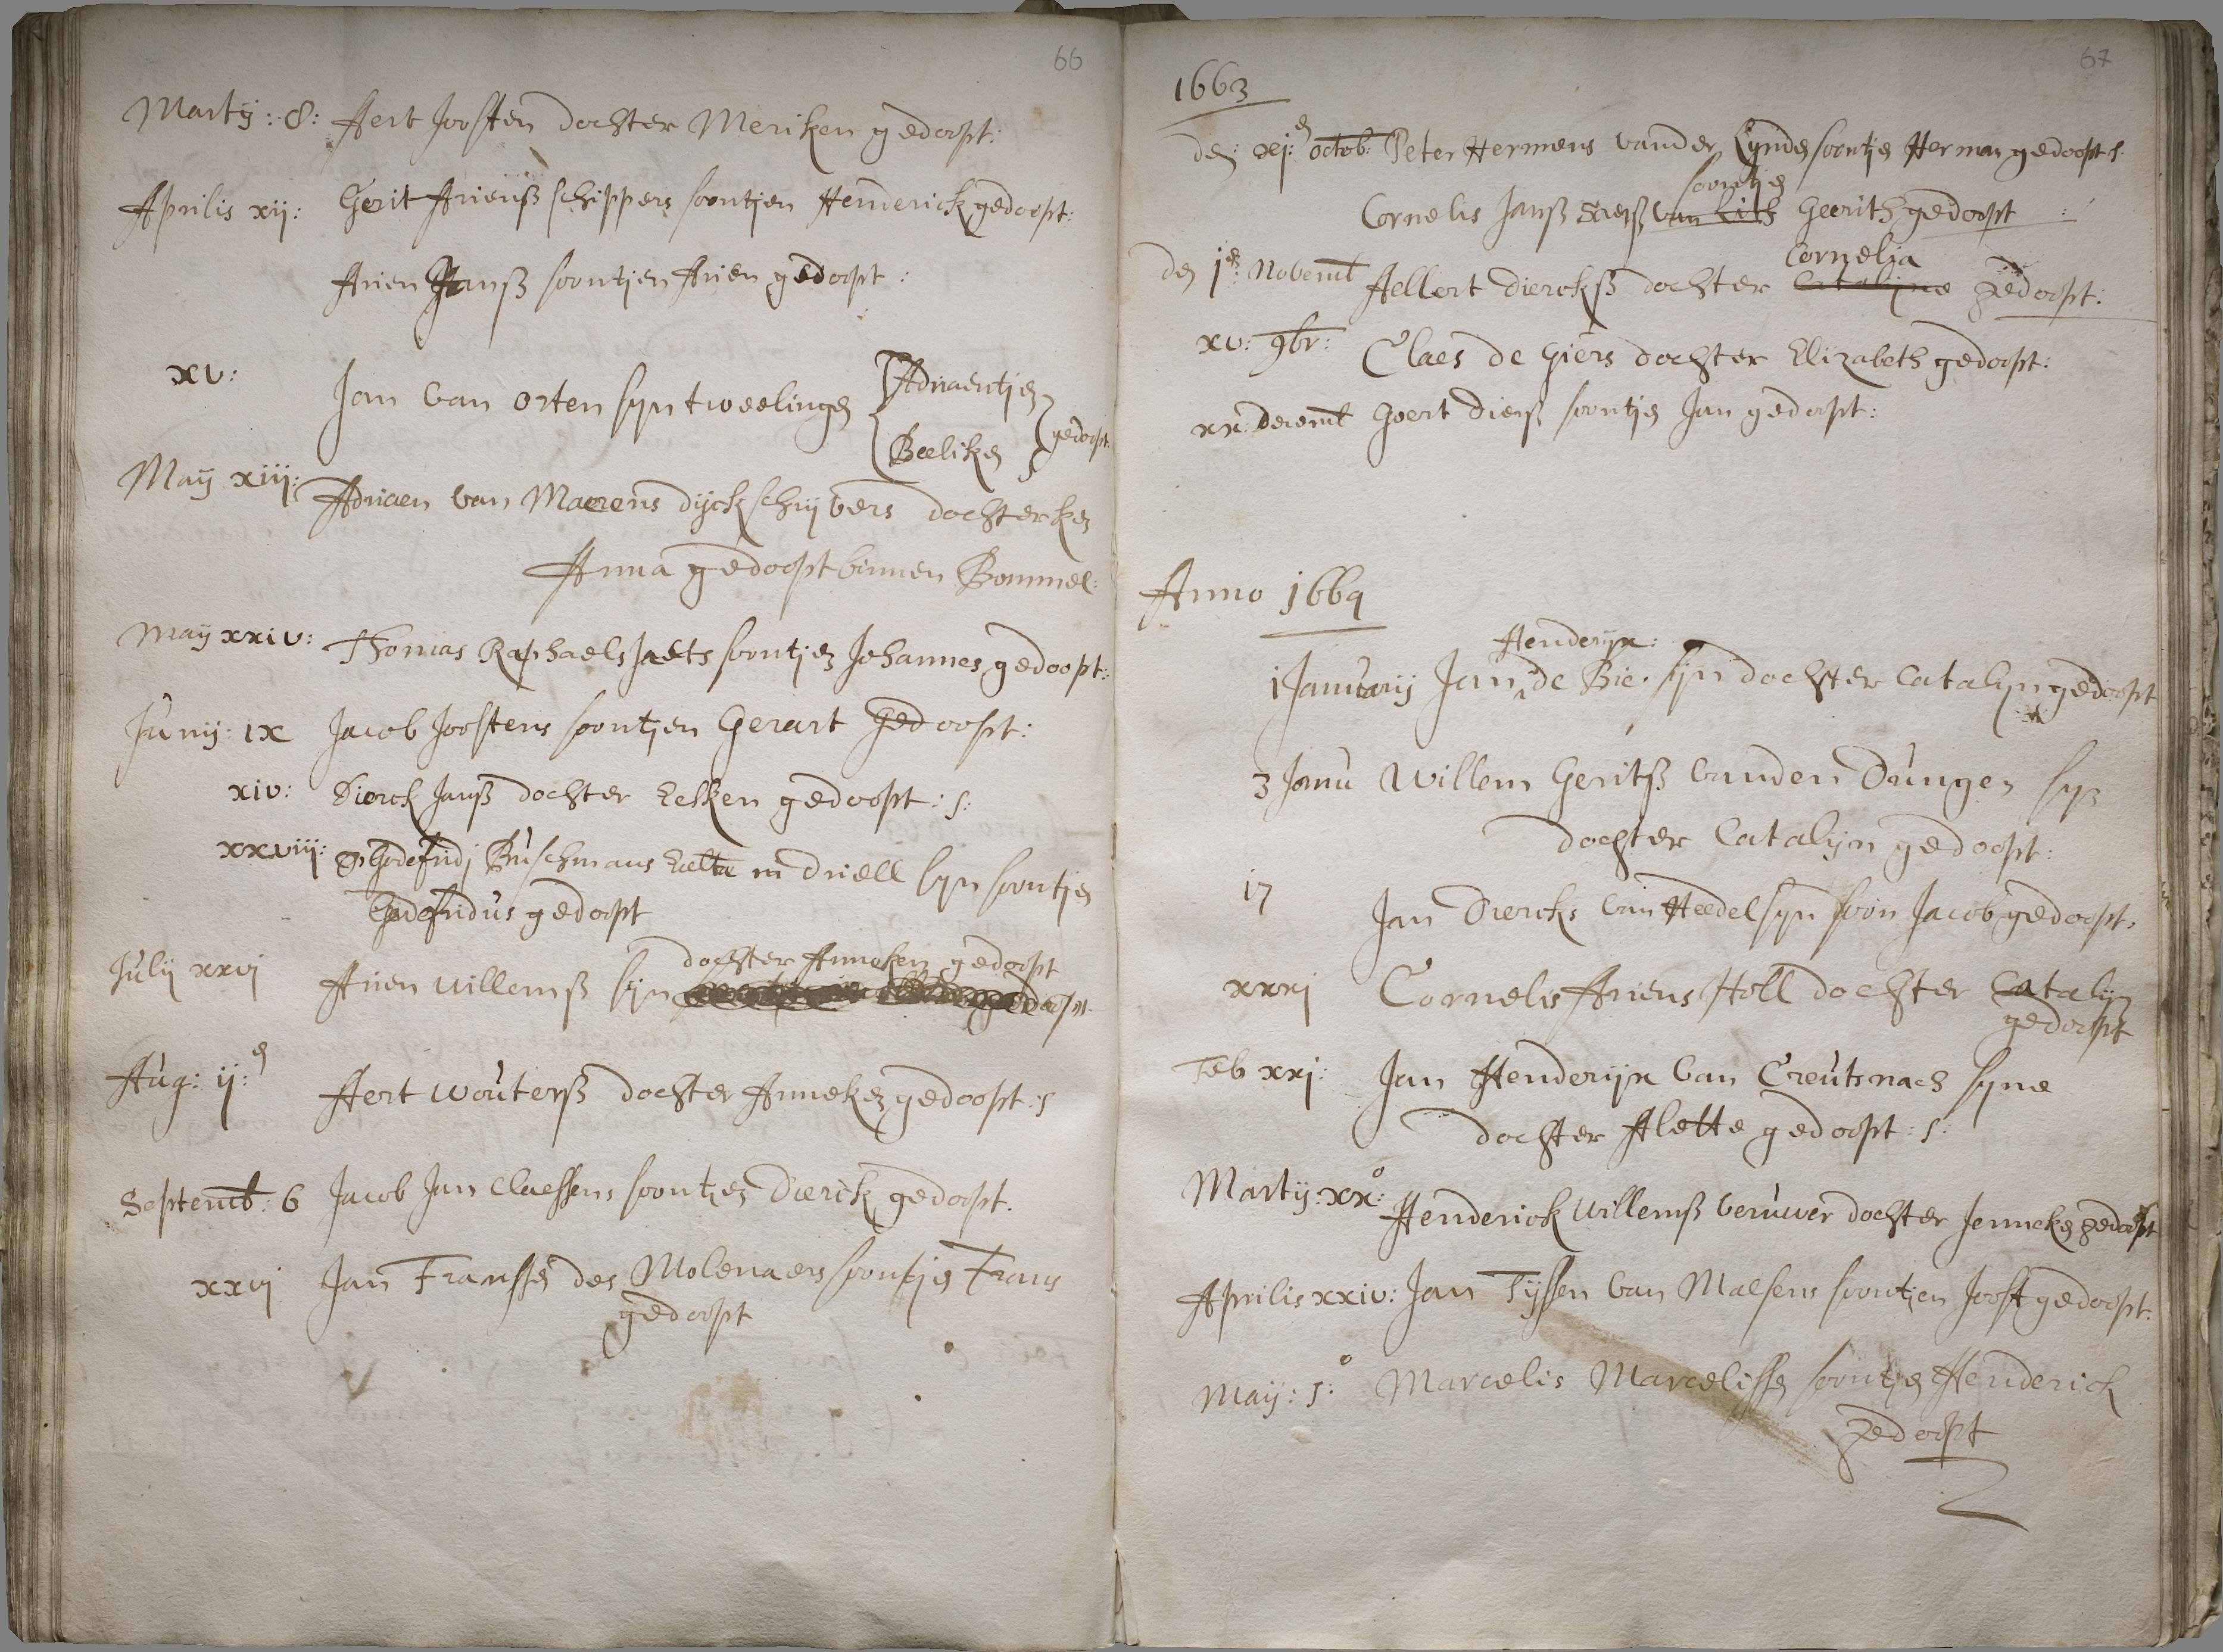 66
Martij: 8: Aert Joosten dochter Meriken gedoopt:
Aprilis xij: Gerit Arienß schippers soontjen Henderick gedoopt:
Arien Janß soontjen Arien gedoopt:
xv: Jan van Orten syn tweelingen Adriaentjen
Beeliken gedoopt
Maij xiij: Adriaen van Maerens dijckschrijvers dochterken
Anna gedoopt binnen Bommel:
Maij xxiv: Thomas Raphaels Jaets soontjen Johannes gedoopt:
Junij: ix Jacob Joostens soontjen Gerart Gedoopt:
xiv: Dierck Janß dochter Eelken gedoopt: s:
xxviij: Godefridj Buschmans in Driell syn soontjen
Godefridus gedoopt
dochter Anneken gedoopt
Julij xxvj Arien Willemß syn
Aug: ij:en Aert Wouterß dochter Anneken gedoopt: s
Septemb: 6 Jacob Jan Claessens soontjen Dierck gedoopt.
xxvj Jan Franssen des Molenaers soontjen Frans
gedoopt
67
1663
den xj:en octob: Peter Hermens vander Lynden soontjen Herman gedoopt s.
soontjen
Cornelis Janß van Lith Geerith gedoopt:
Cornelia
den 1en: Novemb Aellert Dierckß dochter Catalijne gedoopt:
xv: 9br: Claes de Giers dochter Elizabeth gedoopt:
xx: Decemb Goert Dierß soontjen Jan gedoopt:
Anno 1664
Henderijx:
1 Januarij Jan de Bie syn dochter Catalijn gedoopt
3 Janu Willem Geritß vanden Dungen syn
dochter Catalijn gedoopt:
17 Jan Diercks van Heedel syn soon Jacob gedoopt.
xxxj Cornelis Ariens Holl dochter Catalijn
gedoopt
Feb xxj: Jan Henderijx van Creutsnach syne
dochter Aletta gedoopt: s:
Martij: xxo: Henderick Willemß Veruwer dochter Jenneken gedoopt
Aprilis xxiv: Jan Tijssen van Malsens soontjen Joost gedoopt.
Maij: 5:o Marcelis Marcelissen soontjen Henderick
gedoopt